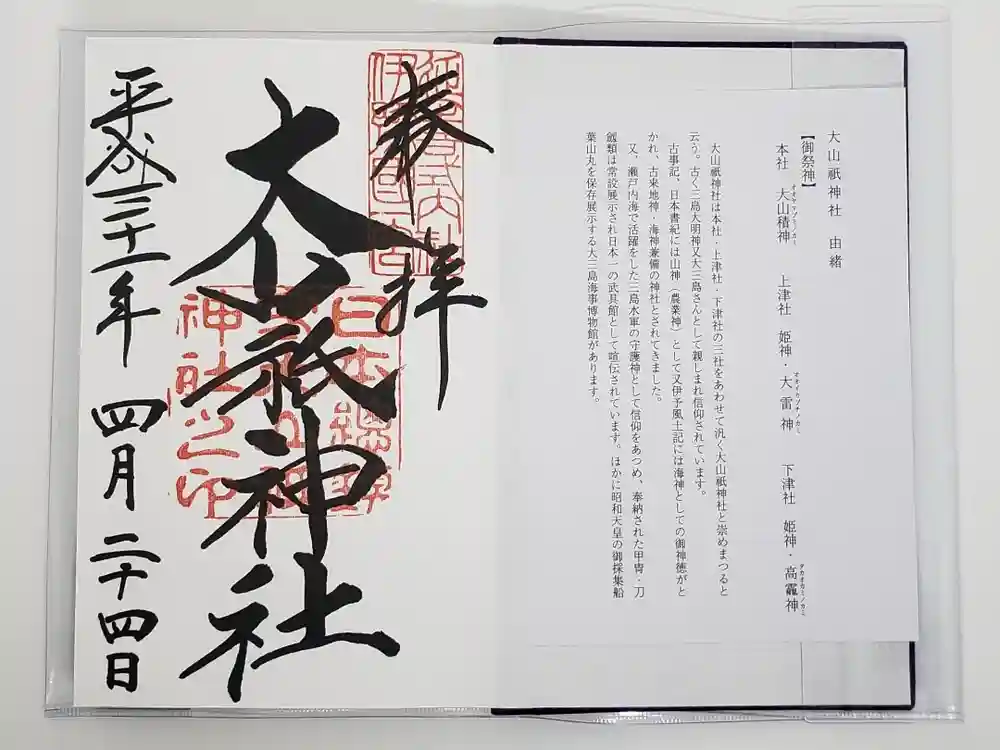 大山祇神社　由緒
【御祭神】
本社　大山積神　　上津社　姫神・大雷神　　下津社　姫神・高龗神
オオヤマツミノカミ
オオイカヅチノカミ
タカオカミノカミ
大山祇神社は本社・上津社・下津社の三社をあわせて汎く大山祇神社と崇めまつると
云う。古く三島大明神又大三島さんとして親しまれ信仰されています。
古事記、日本書紀には山神（農業神）として又伊予風土記には海神としての御神徳がと
かれ、古来地神・海神兼備の神社とされてきました。
又、瀬戸内海で活躍をした三島水軍の守護神として信仰をあつめ、奉納された甲冑・刀
劔類は常設展示され日本一の武具館として喧伝されています。ほかに昭和天皇の御採集船
葉山丸を保存展示する大三島海事博物館があります。
奉拝
大山祇神社
平成三十一年四月二十四日
延喜式内社
伊予国一宮
日本総鎮
神社之印